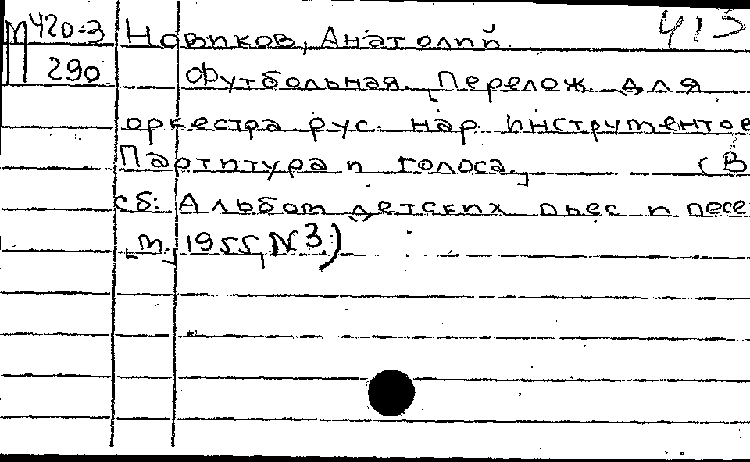 М 420-3 Новиков, Анатолий. 413
290 Футбольная. Перелож. для
оркестра рус. нар. инструментов
Партитура и голоса. (В
сб: Альбом детских пьес и песе
м., 1955, N3.)